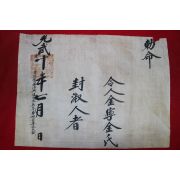 勅命
令人金寧金氏
封淑人者
光武十年七月 日